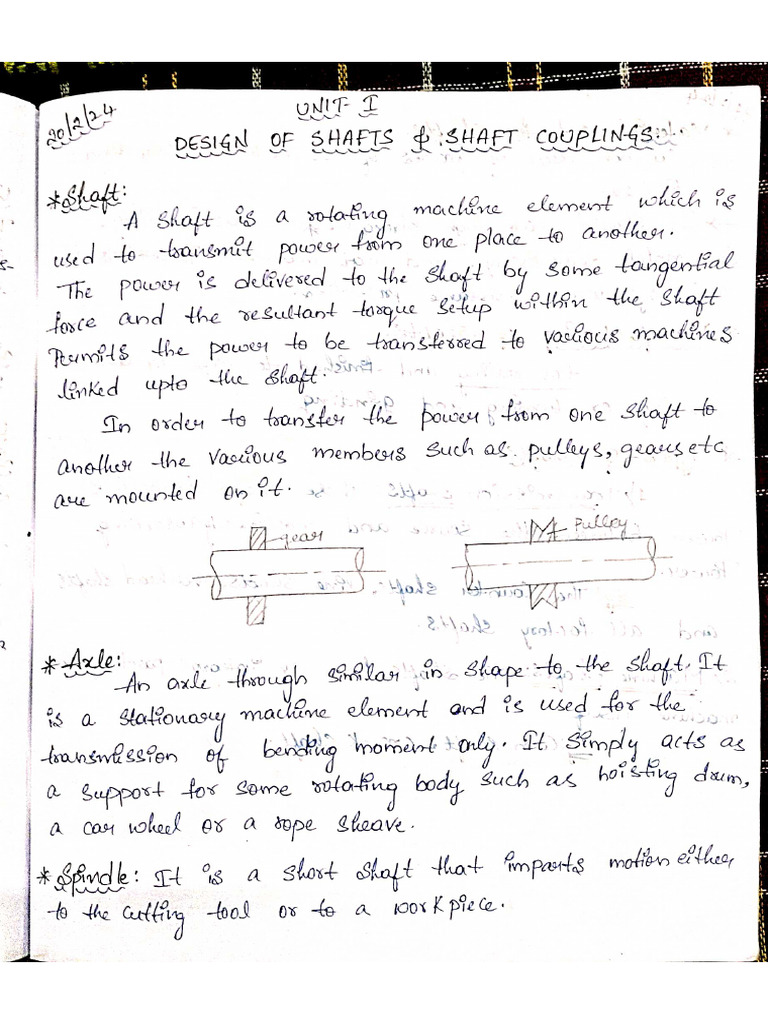 20/2/24
UNIT- I
DESIGN OF SHAFTS & SHAFT COUPLINGS:
* Shaft:
A shaft is a rotating machine element which is
used to transmit power from one place to another.
The power is delivered to the shaft by some tangential
force and the resultant torque setup within the shaft
Permits the power to be transferred to various machines
linked upto the shaft.
In order to transfer the power from one shaft to
another the various members such as pulleys, gears etc
are mounted on it.
gear
Pulley
* Axle:
An axle through similar in shape to the shaft. It
is a stationary machine element and is used for the
transmission of bending moment only. It simply acts as
a support for some rotating body such as hoisting drum,
a car wheel or a rope sheave.
* Spindle: It is a short shaft that imparts motion either
to the cutting tool or to a workpiece.